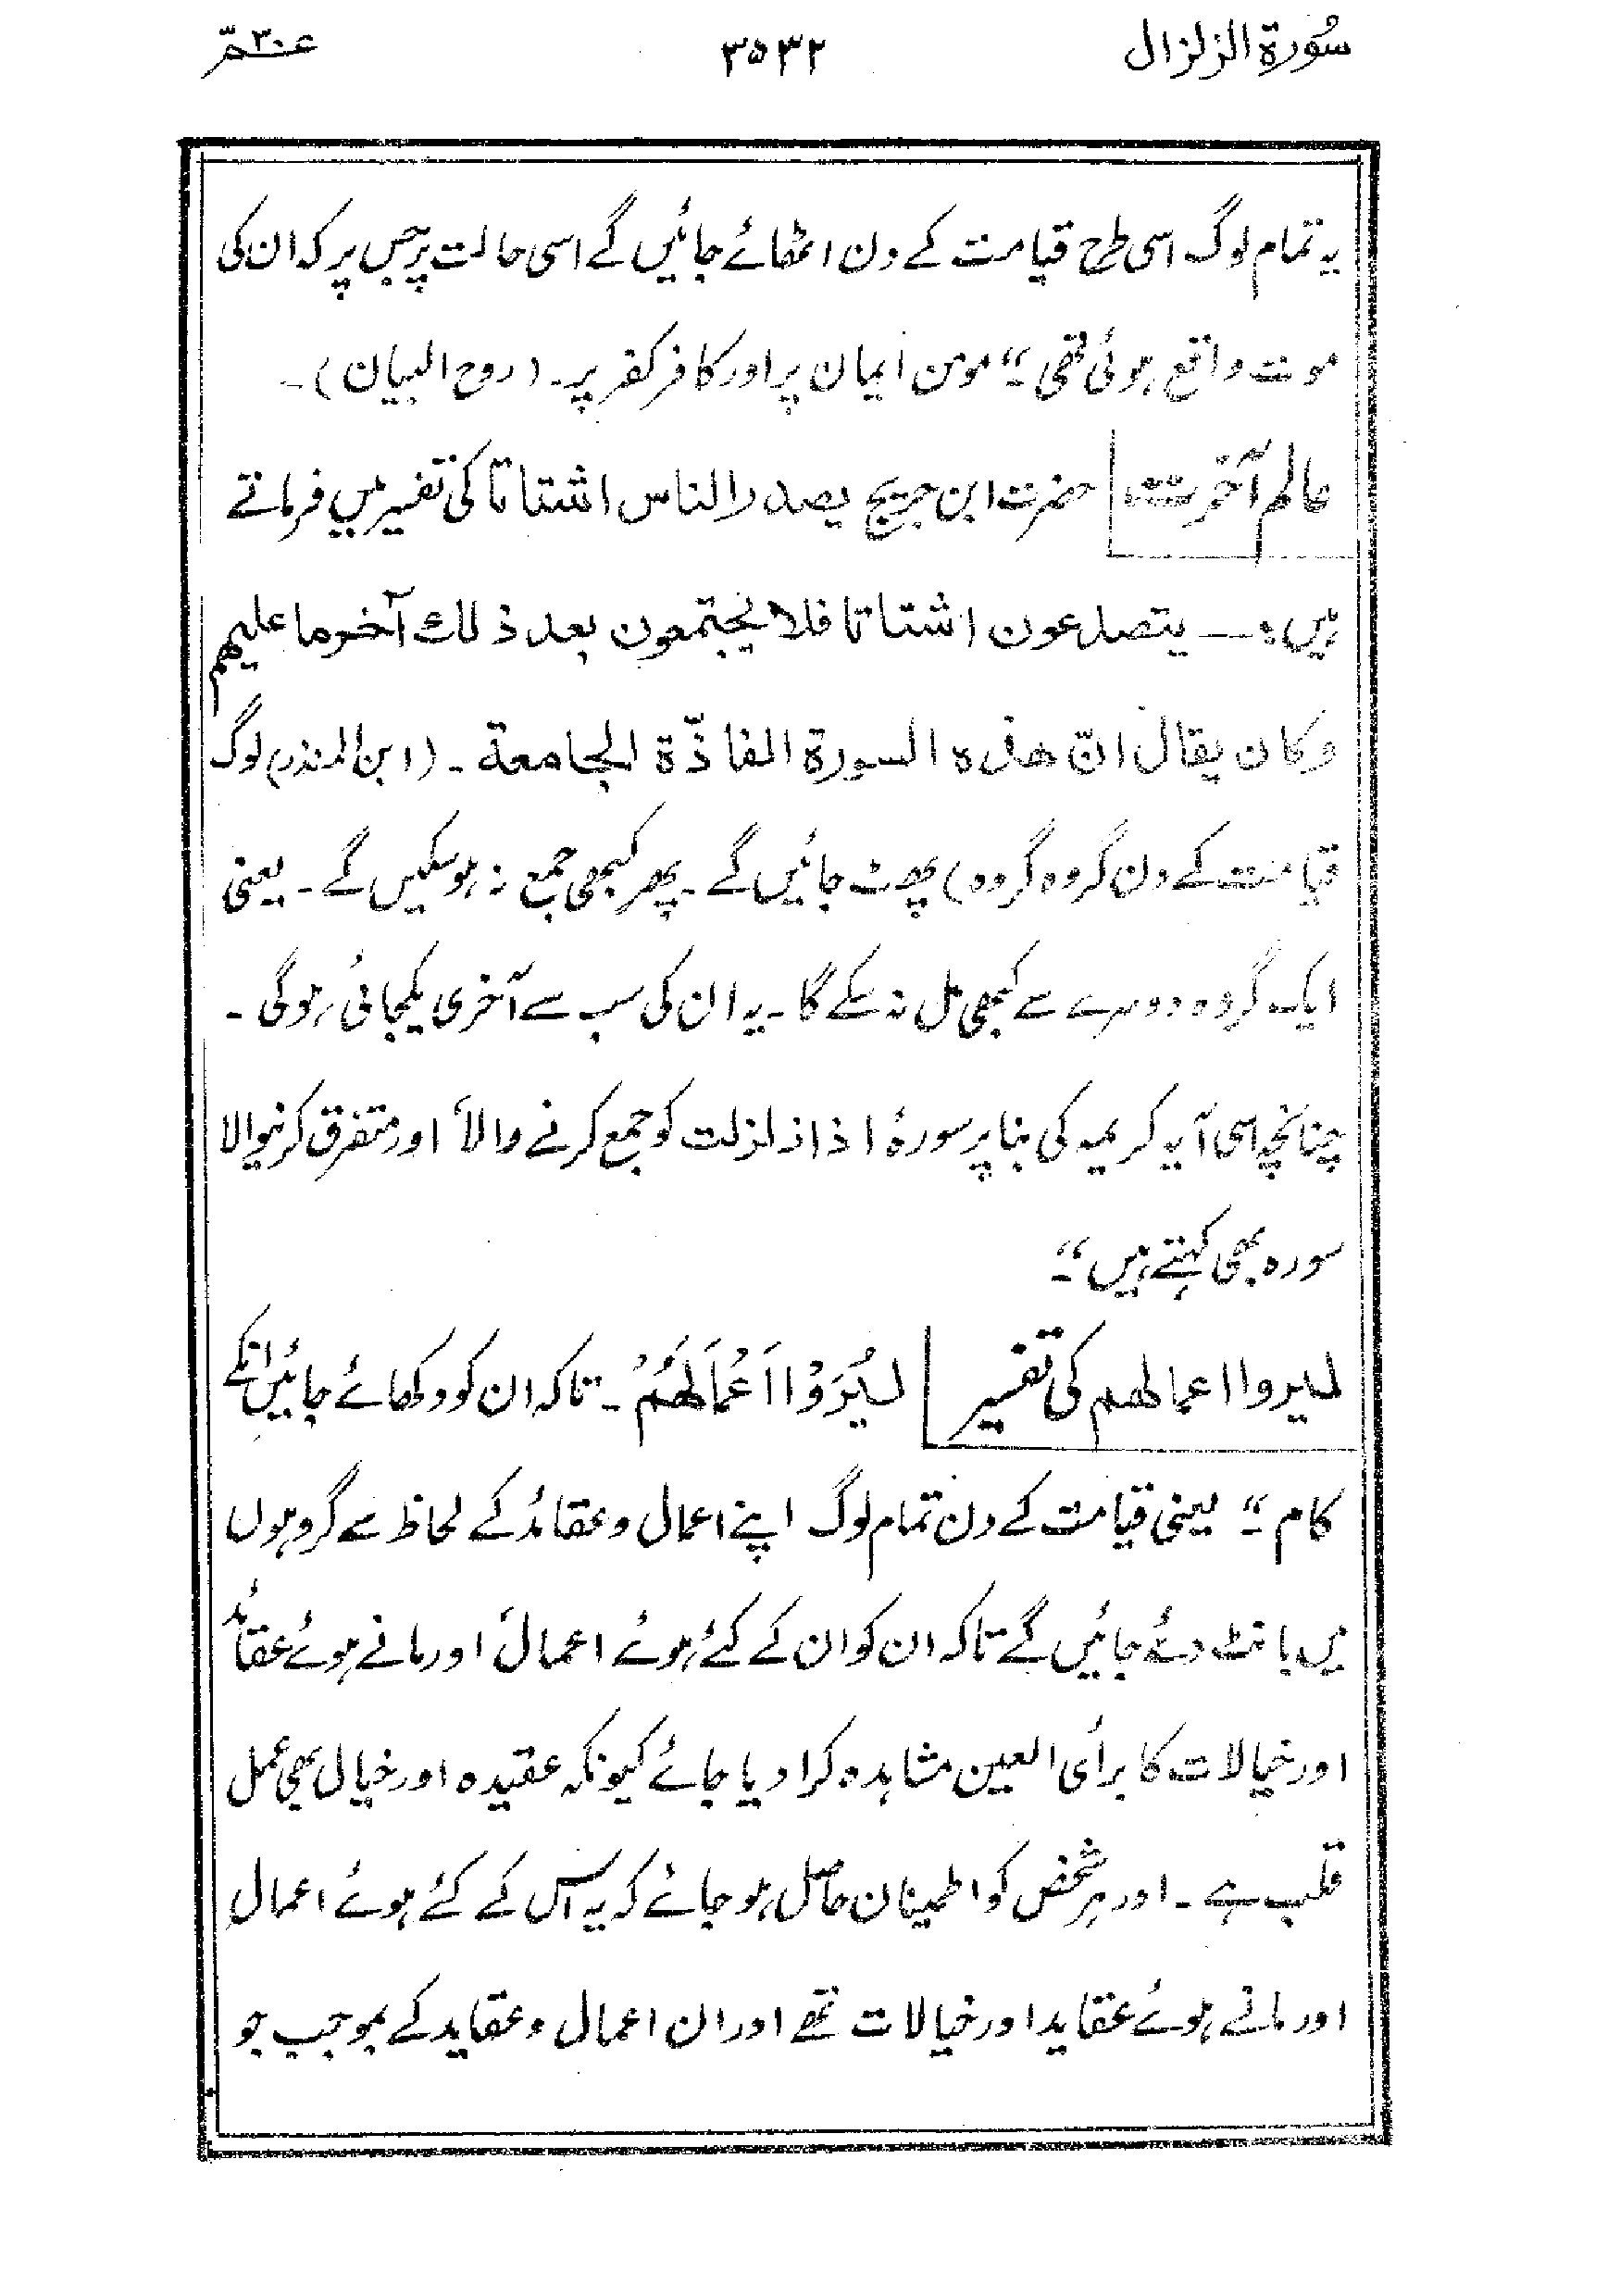 سُورۃ الزلزال ۳۵۳۲ عمّ ۳۰
یہ تمام لوگ اسی طرح قیامت کے دن اٹھائے جائیں گے اسی حالت پر جس پر کہ ان کی
موت واقع ہوئی تھی ۔“ مومن ایمان پر اور کافر کفر پر ۔ ( روح البیان ) ۔
عالمِ آخرت حضرت ابن جریج یصدر الناس اشتاتا کی تفسیر میں فرماتے
ہیں : ـــ یتصدعون اشتاتا فلا یجتمعون بعد ذلك آخر ما علیهم
وکان یقال انّ هذه السورة الفاذّة الجامعة ۔ ( ابن المنذر) لوگ
قیامت کے دن گروہ گروہ ) پھٹ جائیں گے ۔ پھر کبھی جمع نہ ہو سکیں گے ۔ یعنی
ایک گروہ دوسرے سے کبھی مل نہ سکے گا ۔ یہ ان کی سب سے آخری یکجائی ہوگی ۔
چنانچہ اسی آیہ کریمہ کی بنا پر سورۂ اذا زلزلت کو جمع کرنے والا اور متفرق کرنیوالا
سورہ بھی کہتے ہیں “۔
لیروا اعمالهم کی تفسیر لِیُرَوْا اَعْمَالَهُمْ ۔ تاکہ ان کو دکھائے جائیں انکے
کام ۔“ یعنی قیامت کے دن تمام لوگ اپنے اعمال و عقائد کے لحاظ سے گروہوں
میں بانٹ دئے جائیں گے تاکہ ان کو ان کے کئے ہوئے اعمال اور مانے ہوئے عقائد
اور خیالات کا برأی العین مشاہدہ کرا دیا جائے کیونکہ عقیدہ اور خیال بھی عمل
قلب ہے ۔ اور ہر شخص کو اطمینان حاصل ہو جائے کہ یہ اس کے کئے ہوئے اعمال
اور مانے ہوئے عقاید اور خیالات تھے اور ان اعمال و عقاید کے بموجب جو